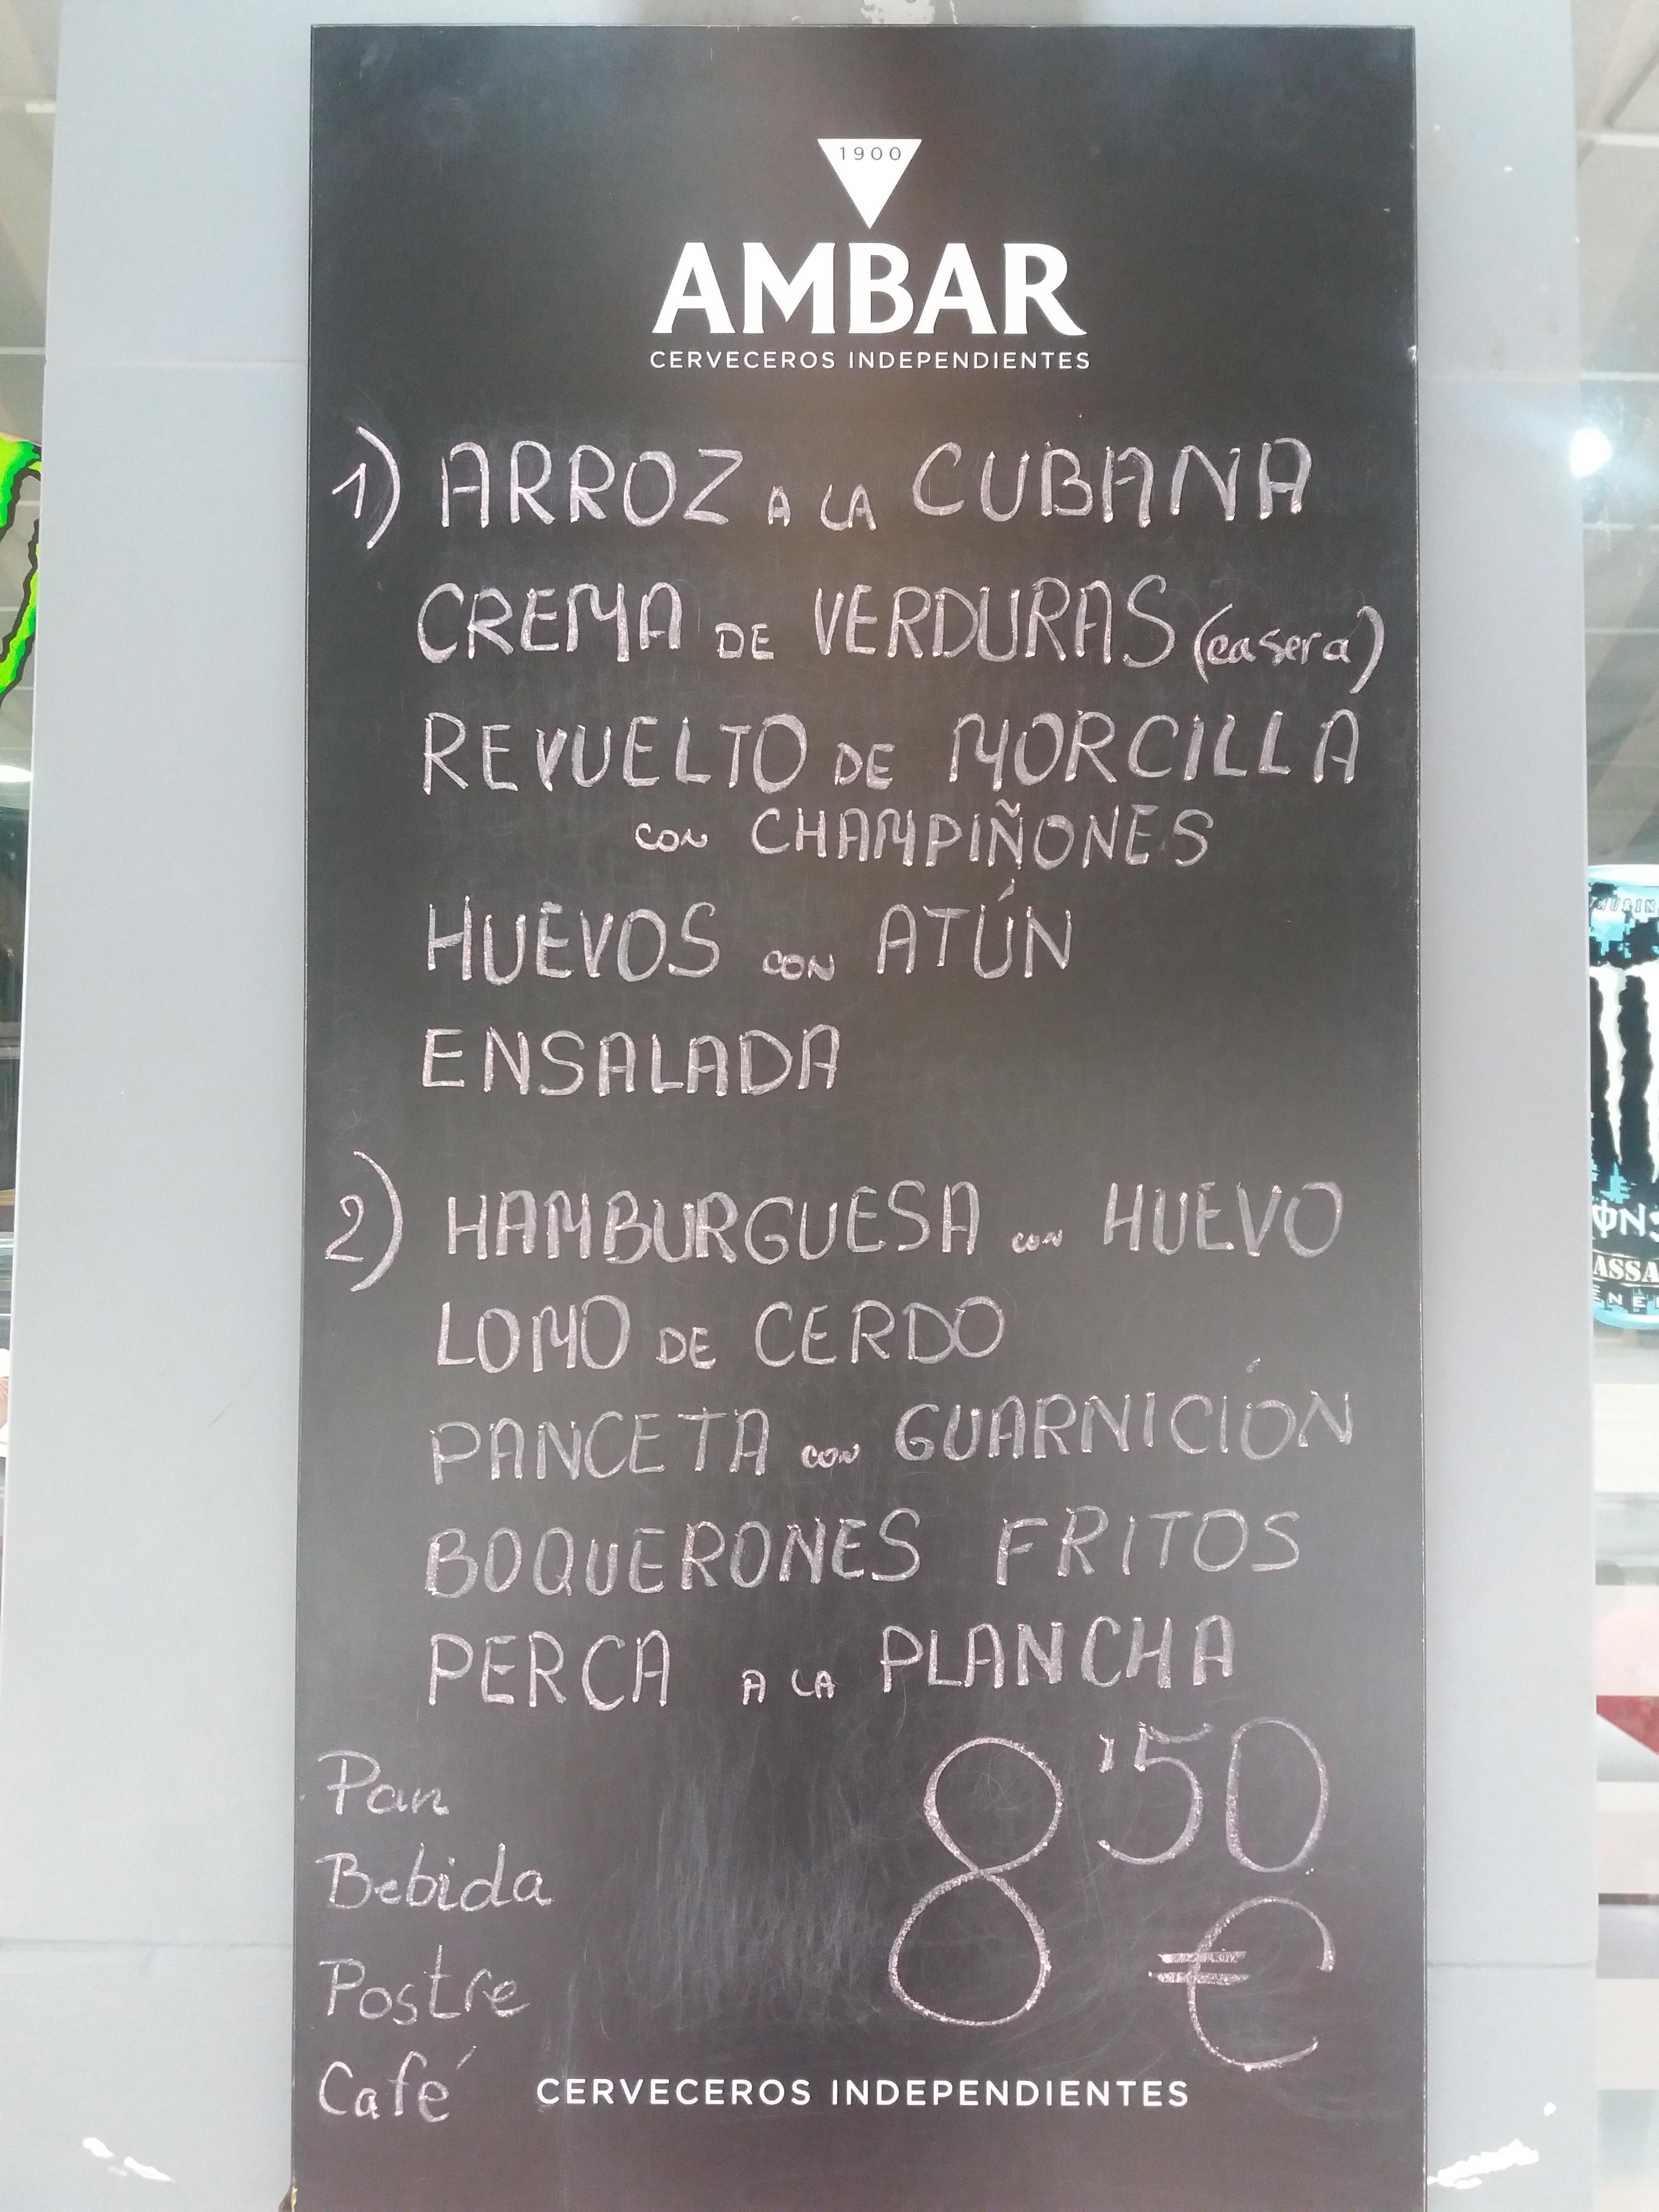 1900
AMBAR
CERVECEROS INDEPENDIENTES
1) ARROZ A LA CUBANA
CREMA DE VERDURAS (casera)
REVUELTO DE MORCILLA
CON CHAMPIÑONES
HUEVOS CON ATÚN
ENSALADA
2) HAMBURGUESA CON HUEVO
LOMO DE CERDO
PANCETA CON GUARNICIÓN
BOQUERONES FRITOS
PERCA A LA PLANCHA
Pan
Bebida
Postre
Café
8'50
€
CERVECEROS INDEPENDIENTES